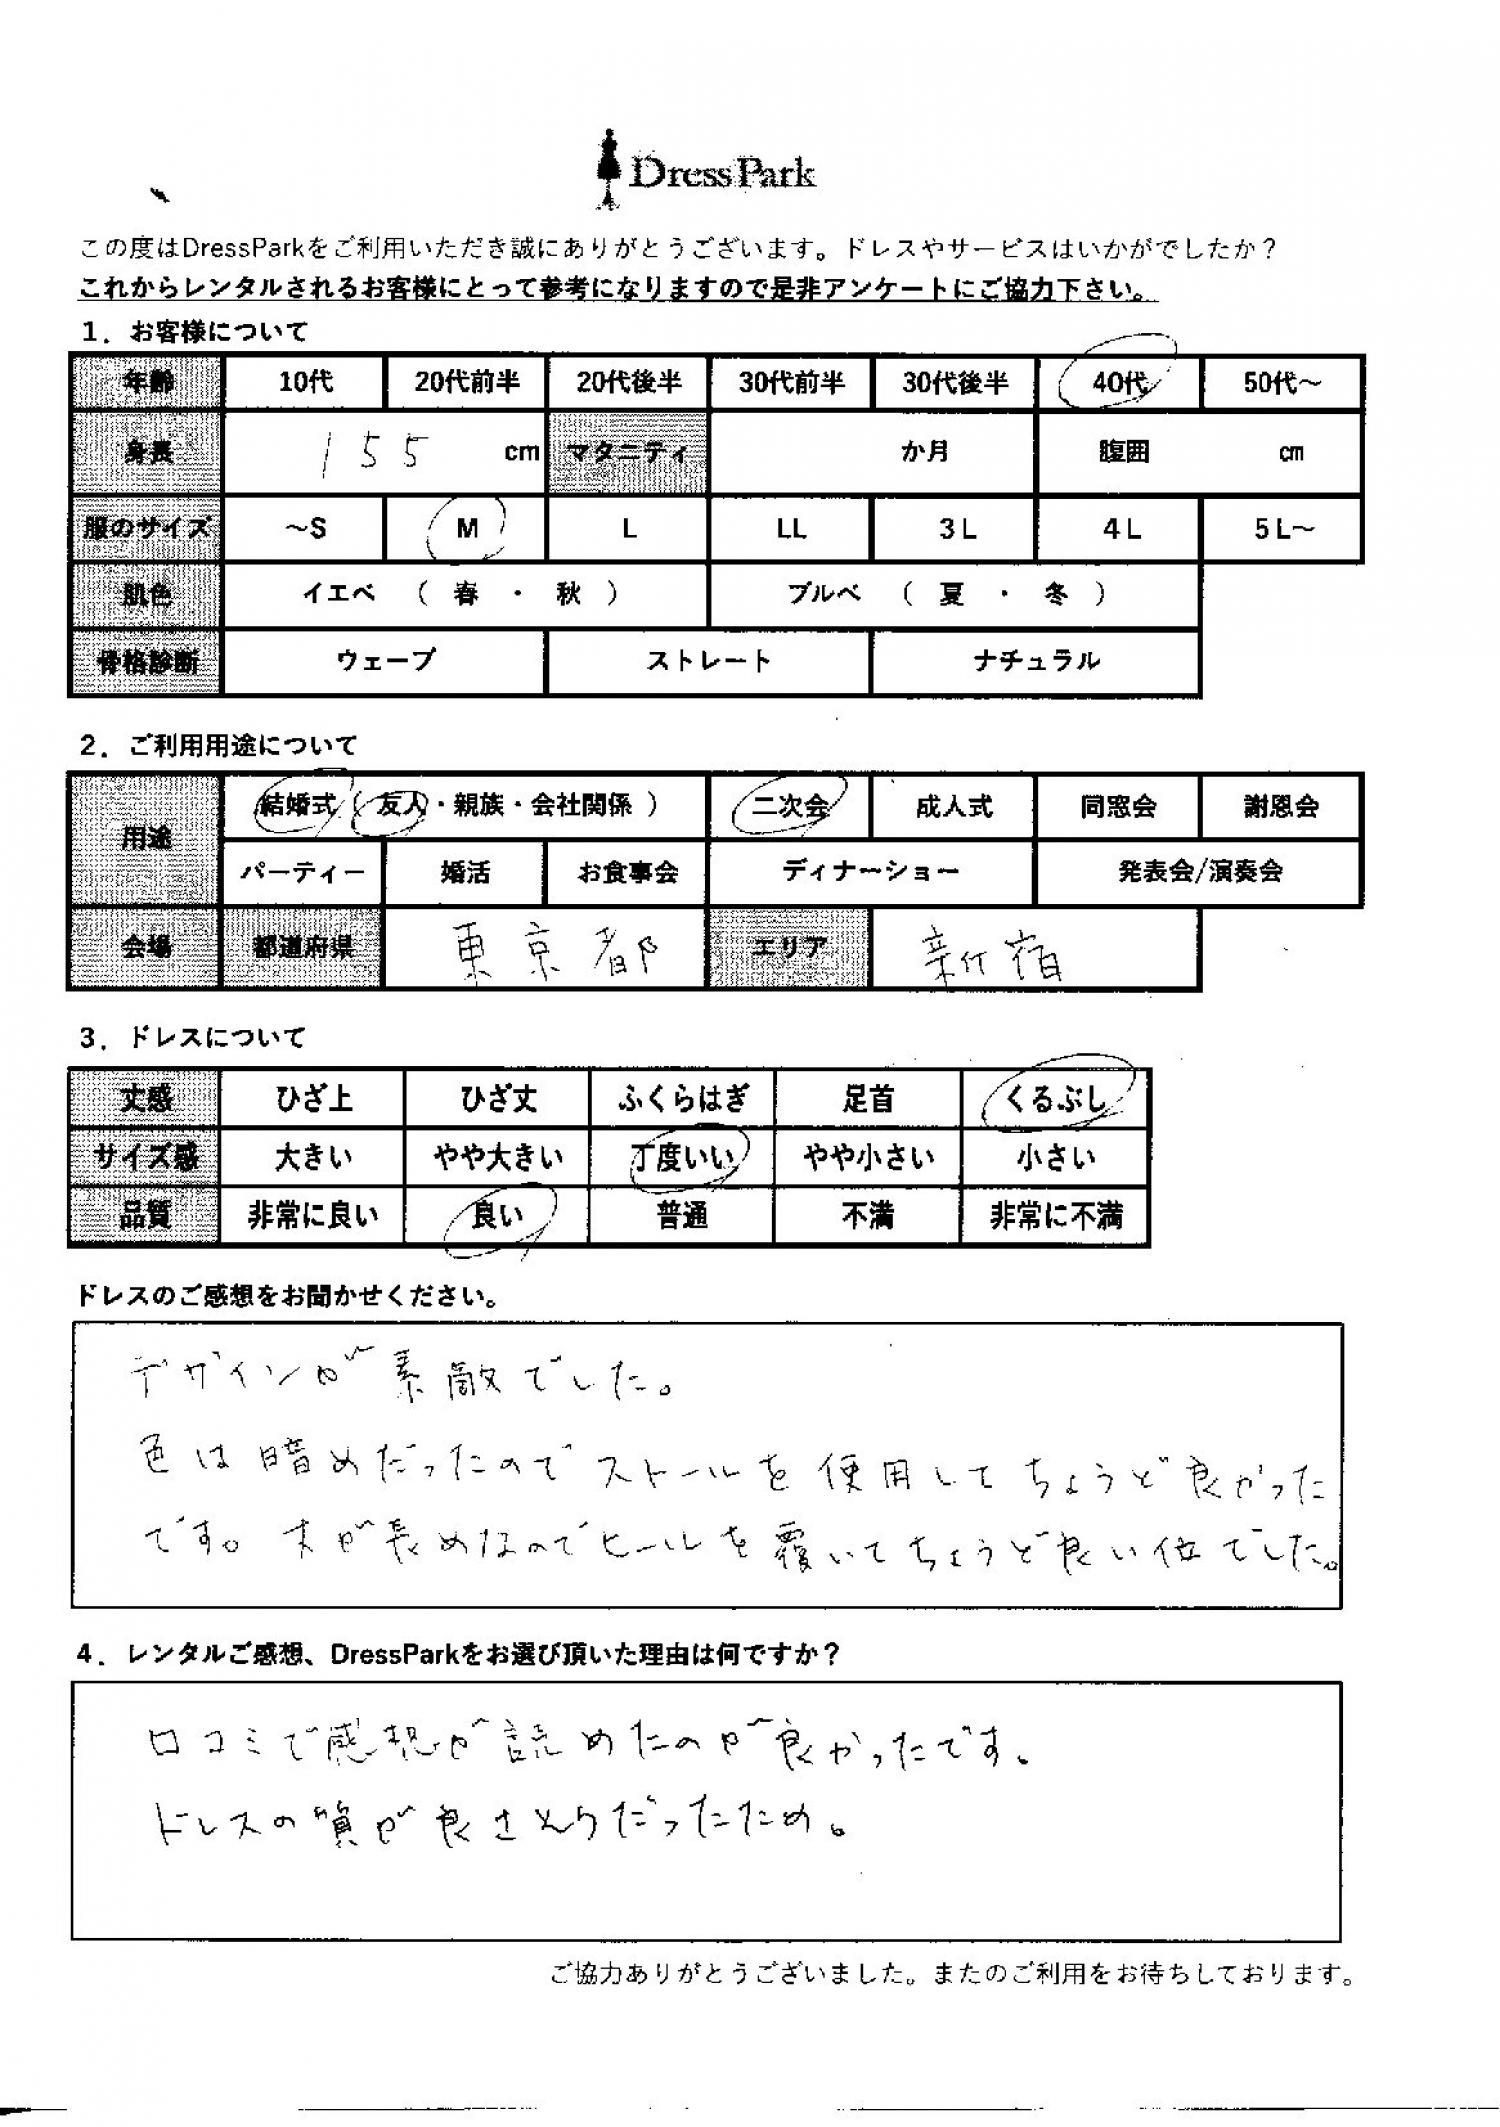 DressPark
この度はDressParkをご利用いただき誠にありがとうございます。ドレスやサービスはいかがでしたか？
これからレンタルされるお客様にとって参考になりますので是非アンケートにご協力下さい。
1．お客様について
年齢 10代 20代前半 20代後半 30代前半 30代後半 40代 50代～
身長 155 cm マタニティ か月 腹囲 cm
服のサイズ ～S M L LL 3L 4L 5L～
肌色 イエベ （ 春 ・ 秋 ） ブルベ （ 夏 ・ 冬 ）
骨格診断 ウェーブ ストレート ナチュラル
2．ご利用用途について
用途 結婚式（ 友人・親族・会社関係 ） 二次会 成人式 同窓会 謝恩会
パーティー 婚活 お食事会 ディナーショー 発表会/演奏会
会場 都道府県 東京都 エリア 新宿
3．ドレスについて
丈感 ひざ上 ひざ丈 ふくらはぎ 足首 くるぶし
サイズ感 大きい やや大きい 丁度いい やや小さい 小さい
品質 非常に良い 良い 普通 不満 非常に不満
ドレスのご感想をお聞かせください。
デザインが素敵でした。
色は暗めだったのでストールを使用してちょうど良かった
です。丈が長めなのでヒールを覆いてちょうど良い位でした。
4．レンタルご感想、DressParkをお選び頂いた理由は何ですか？
口コミで感想が読めたのが良かったです。
ドレスの質が良さそうだったため。
ご協力ありがとうございました。またのご利用をお待ちしております。